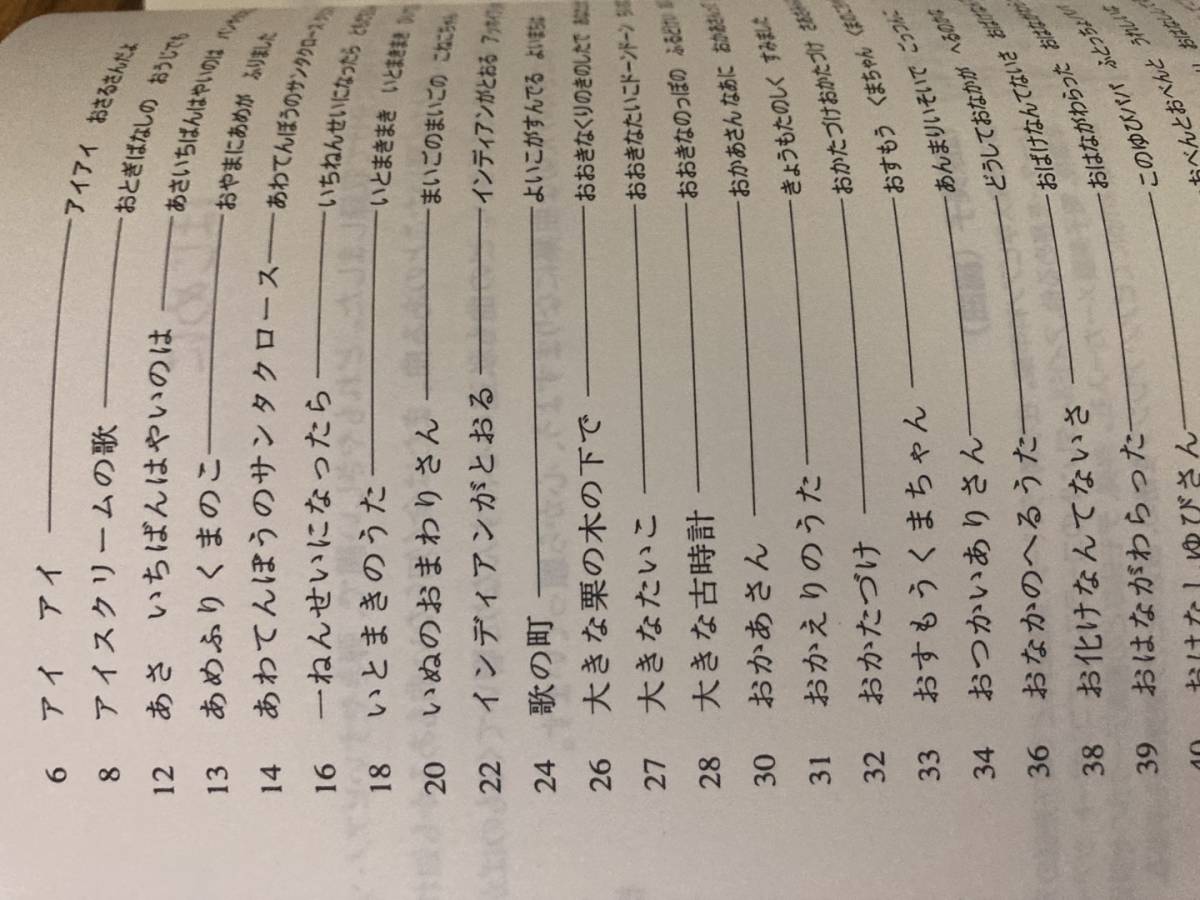 6 アイ アイ アイアイ おさるさんだよ
8 アイスクリームの歌 おとぎばなしの おうじでも
12 あさ いちばんはやいのは あさいちばんはやいのは
13 あめふりくまのこ おやまにあめが ふりました
14 あわてんぼうのサンタクロース あわてんぼうのサンタクロース
16 一ねんせいになったら いちねんせいになったら
18 いとまきのうた いとまきまき いとまきまき
20 いぬのおまわりさん まいごのまいごの こねこちゃん
22 インディアンがとおる インディアンがとおる
24 歌の町 よいこがすんでる よいまちは
26 大きな栗の木の下で おおきなくりのきのしたで
27 大きなたいこ おおきなたいこドーンドーン
28 大きな古時計 おおきなのっぽの ふるどけい
30 おかあさん おかあさんなあに
31 おかえりのうた きょうもたのしく すみました
32 おかたづけ おかたづけおかたづけ
33 おすもうくまちゃん おすもう くまちゃん
34 おつかいありさん あんまりいそいで ごっつんこ
36 おなかのへるうた どうしておなかが へるのかな
38 お化けなんてないさ おばけなんてないさ
39 おはながわらった おはながわらった
40 おはなしゆびさん このゆびパパ ふとっちょパパ
おべんとおべんと うれしいな